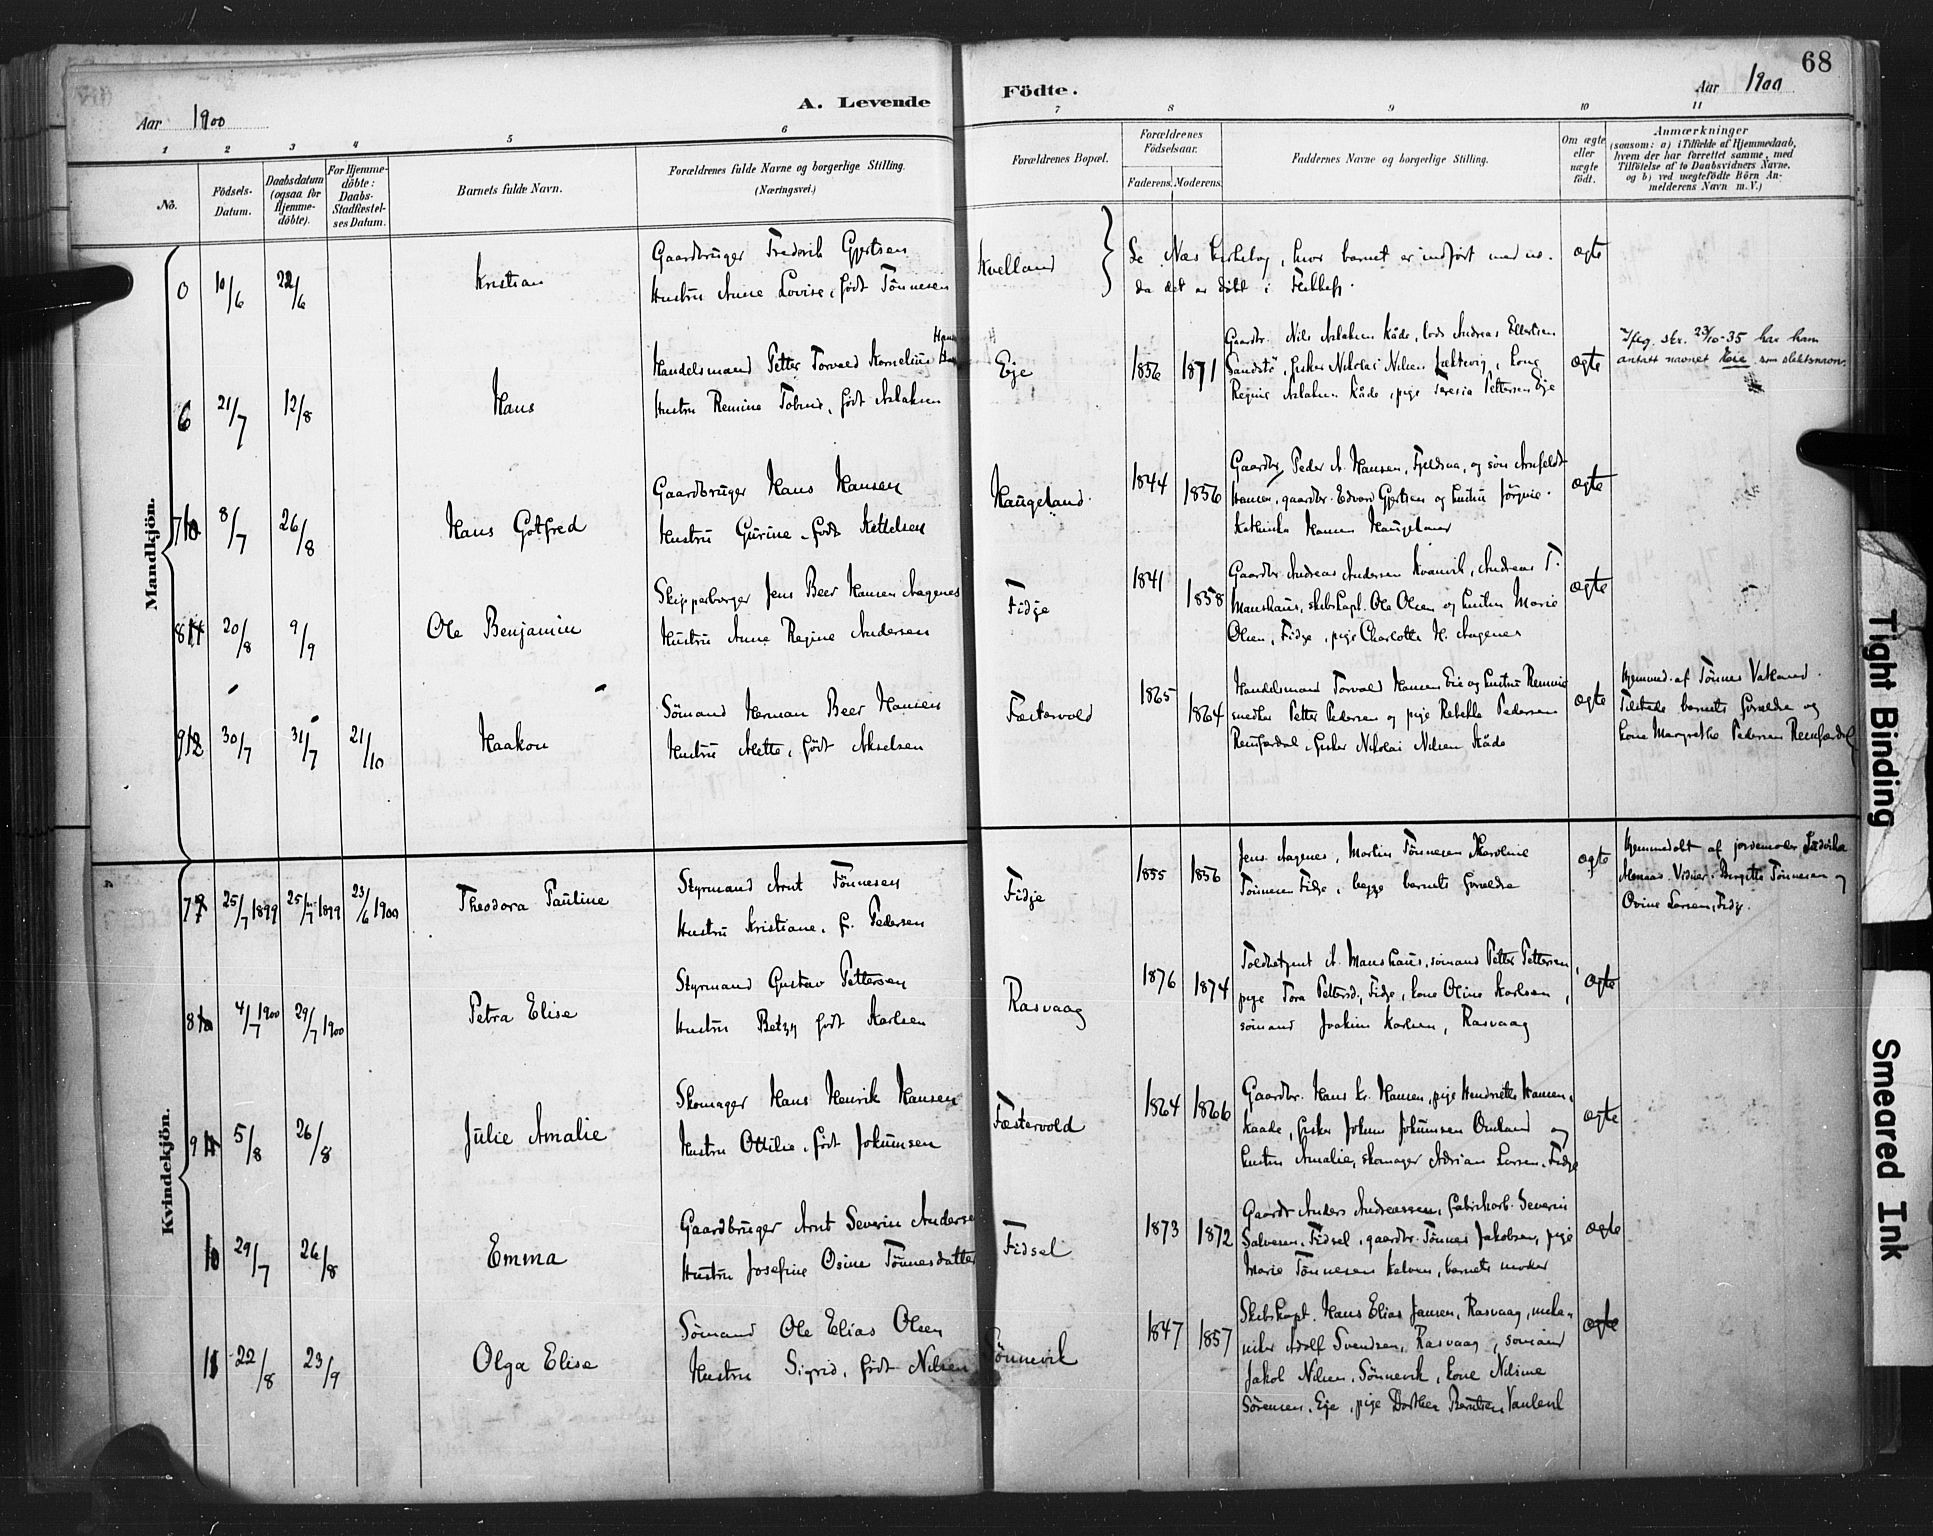 68
Aar 1900
A. Levende
Födte.
Aar 1900
1 2 3 4 5 6 7 8 9 10 11
No.
Födsels-Datum.
Daabsdatum (ogsaa for Hjemme-döbte).
For Hjemme-döbte: Daabs-Stadfæstel-ses Datum.
Barnets fulde Navn.
Forældrenes fulde Navne og borgerlige Stilling.
(Næringsvei.)
Forældrenes Bopæl.
Forældrenes Födselsaar.
Faderens. Moderens.
Faddernes Navne og borgerlige Stilling.
Om ægte eller uægte födt.
Anmærkninger
(saasom: a) i Tilfælde af Hjemmedaab,
hvem der har forrettet samme, med
Tilföielse af to Daabsvidners Navne,
og b) ved uægtefödte Börn An-
melderens Navn m. V.)
Mandkjön.
0 10/6 22/6 Kristian
Gaardbruger Frederik Gjertsen
Hustru Anne Lovise, født Tönnesen
Kvelland
Se Næs kirkebog, hvor barnet er indført med no.
da det er døbt i Flekkefj.
ægte
6 21/7 12/8 Hans
Handelsmand Petter Torvald Kornelius Hansen
Hustru Remine Tobine, født Aslaksen
Eje 1856 1871
Gaardbr. Nils Aslaksen Kåde, lods Andreas Ellertsen
Sandstö, fisker Nikolai Nilsen, kone
Regine Aslaksen Kåde, pige Teresia Pettersen Eje
ægte
Ifølg. skr. 23/10-35 har han
antatt navnet Eie som slektsnavn.
7 8/7 26/8 Hans Gotfred
Gaardbruger Hans Hansen
Hustru Gurine, født Kettelsen
Haugeland 1844 1856
Gaardbr. Peder A. Hansen, Fjeldsaa, og søn Arnfeldt
Hansen, gaardbr. Edvard Gjertsen og hustru Jörgine
Kathinka Hansen Haugeland
ægte
8 20/8 9/9 Ole Benjamin
Skipperborger Jens Beer Hansen Aagenes
Hustru Anne Regine Andersen
Fidje 1841 1858
Gaardbr. Andreas Andersen Kvanvik, Andreas T.
Maushaus, skibskapt. Ole Olsen og hustru Marie
Olsen, Fidje, pige Charlotte H. Aagenes
ægte
9 30/7 31/7 21/10 Haakon
Sömand Herman Beer Hansen
Hustru Mette, født Akselsen
Fæstervold 1865 1864
Handelsmand Torvald Hansen Eie og hustru Remine
snedker Petter Pedersen og pige Rebekka Pedersen
Remfærdal, fisker Nikolai Nilsen Kåde
ægte
Hjemmed. af Tönnes Vatland.
Tilstede barnets forældre og
kone Margrethe Pedersen Remfærdal
Kvindekjön.
7 25/7 1899 25/7 1899 23/6 1900 Theodora Pauline
Styrmand Arnt Tönnesen
Hustru Kristiane, f. Pedersen
Fidje 1855 1856
Jens Aagenes, Martin Tönnesen, Karoline
Tönnesen Fidje, begge barnets forældre
ægte
Hjemmedøbt af jordemoder Fredrikka
Vidner: Birgitte Tönnesen og
Ovine Larsen, Fidje.
8 4/7 1900 29/7 1900 Petra Elise
Styrmand Gustav Pettersen
Hustru Betzy født Karlsen
Rasvaag 1876 1874
Toldbetjent A. Maushaus, sömand Petter Pettersen,
pige Tora Pettersd., Fidje, kone Oline Karlsen,
sömand Joakim Karlsen, Rasvaag
ægte
9 5/8 26/8 Julie Amalie
Skomager Hans Henrik Hansen
Hustru Ottilie, født Jokumsen
Fæstervold 1864 1866
Gaardbr. Hans Kr. Hansen, pige Hendriette Hansen,
Kaade, fisker Jokum Jokumsen Omland og
hustru Amalie, skomager Adrian Larsen, Fidje
ægte
10 29/7 26/8 Emma
Gaardbruger Arnt Severin Anderse
Hustru Josefine Osine Tönnesdatter
Fidsel 1873 1872
Gaardbr Anders Andreassen, fabrikarb. Severin
Salvesen, Fidsel, gaardbr. Tönnes Jakobsen, pige
Marie Tönnesen Kalven, barnets moder
ægte
11 22/8 23/9 Olga Elise
Sömand Ole Elias Olsen
Hustru Sigrid, født Nilsen
Sönnevik 1847 1857
Skibskapt. Hans Elias Jansen, Rasvaag, meka-
niker Adolf Svendsen, Rasvaag, sömand
Jakob Nilsen, Sönnevik, kone Nilsine
Sörensen, Eje, pige Dorthea Berntsen Vanlent
ægte
Tight Binding
Smeared Ink